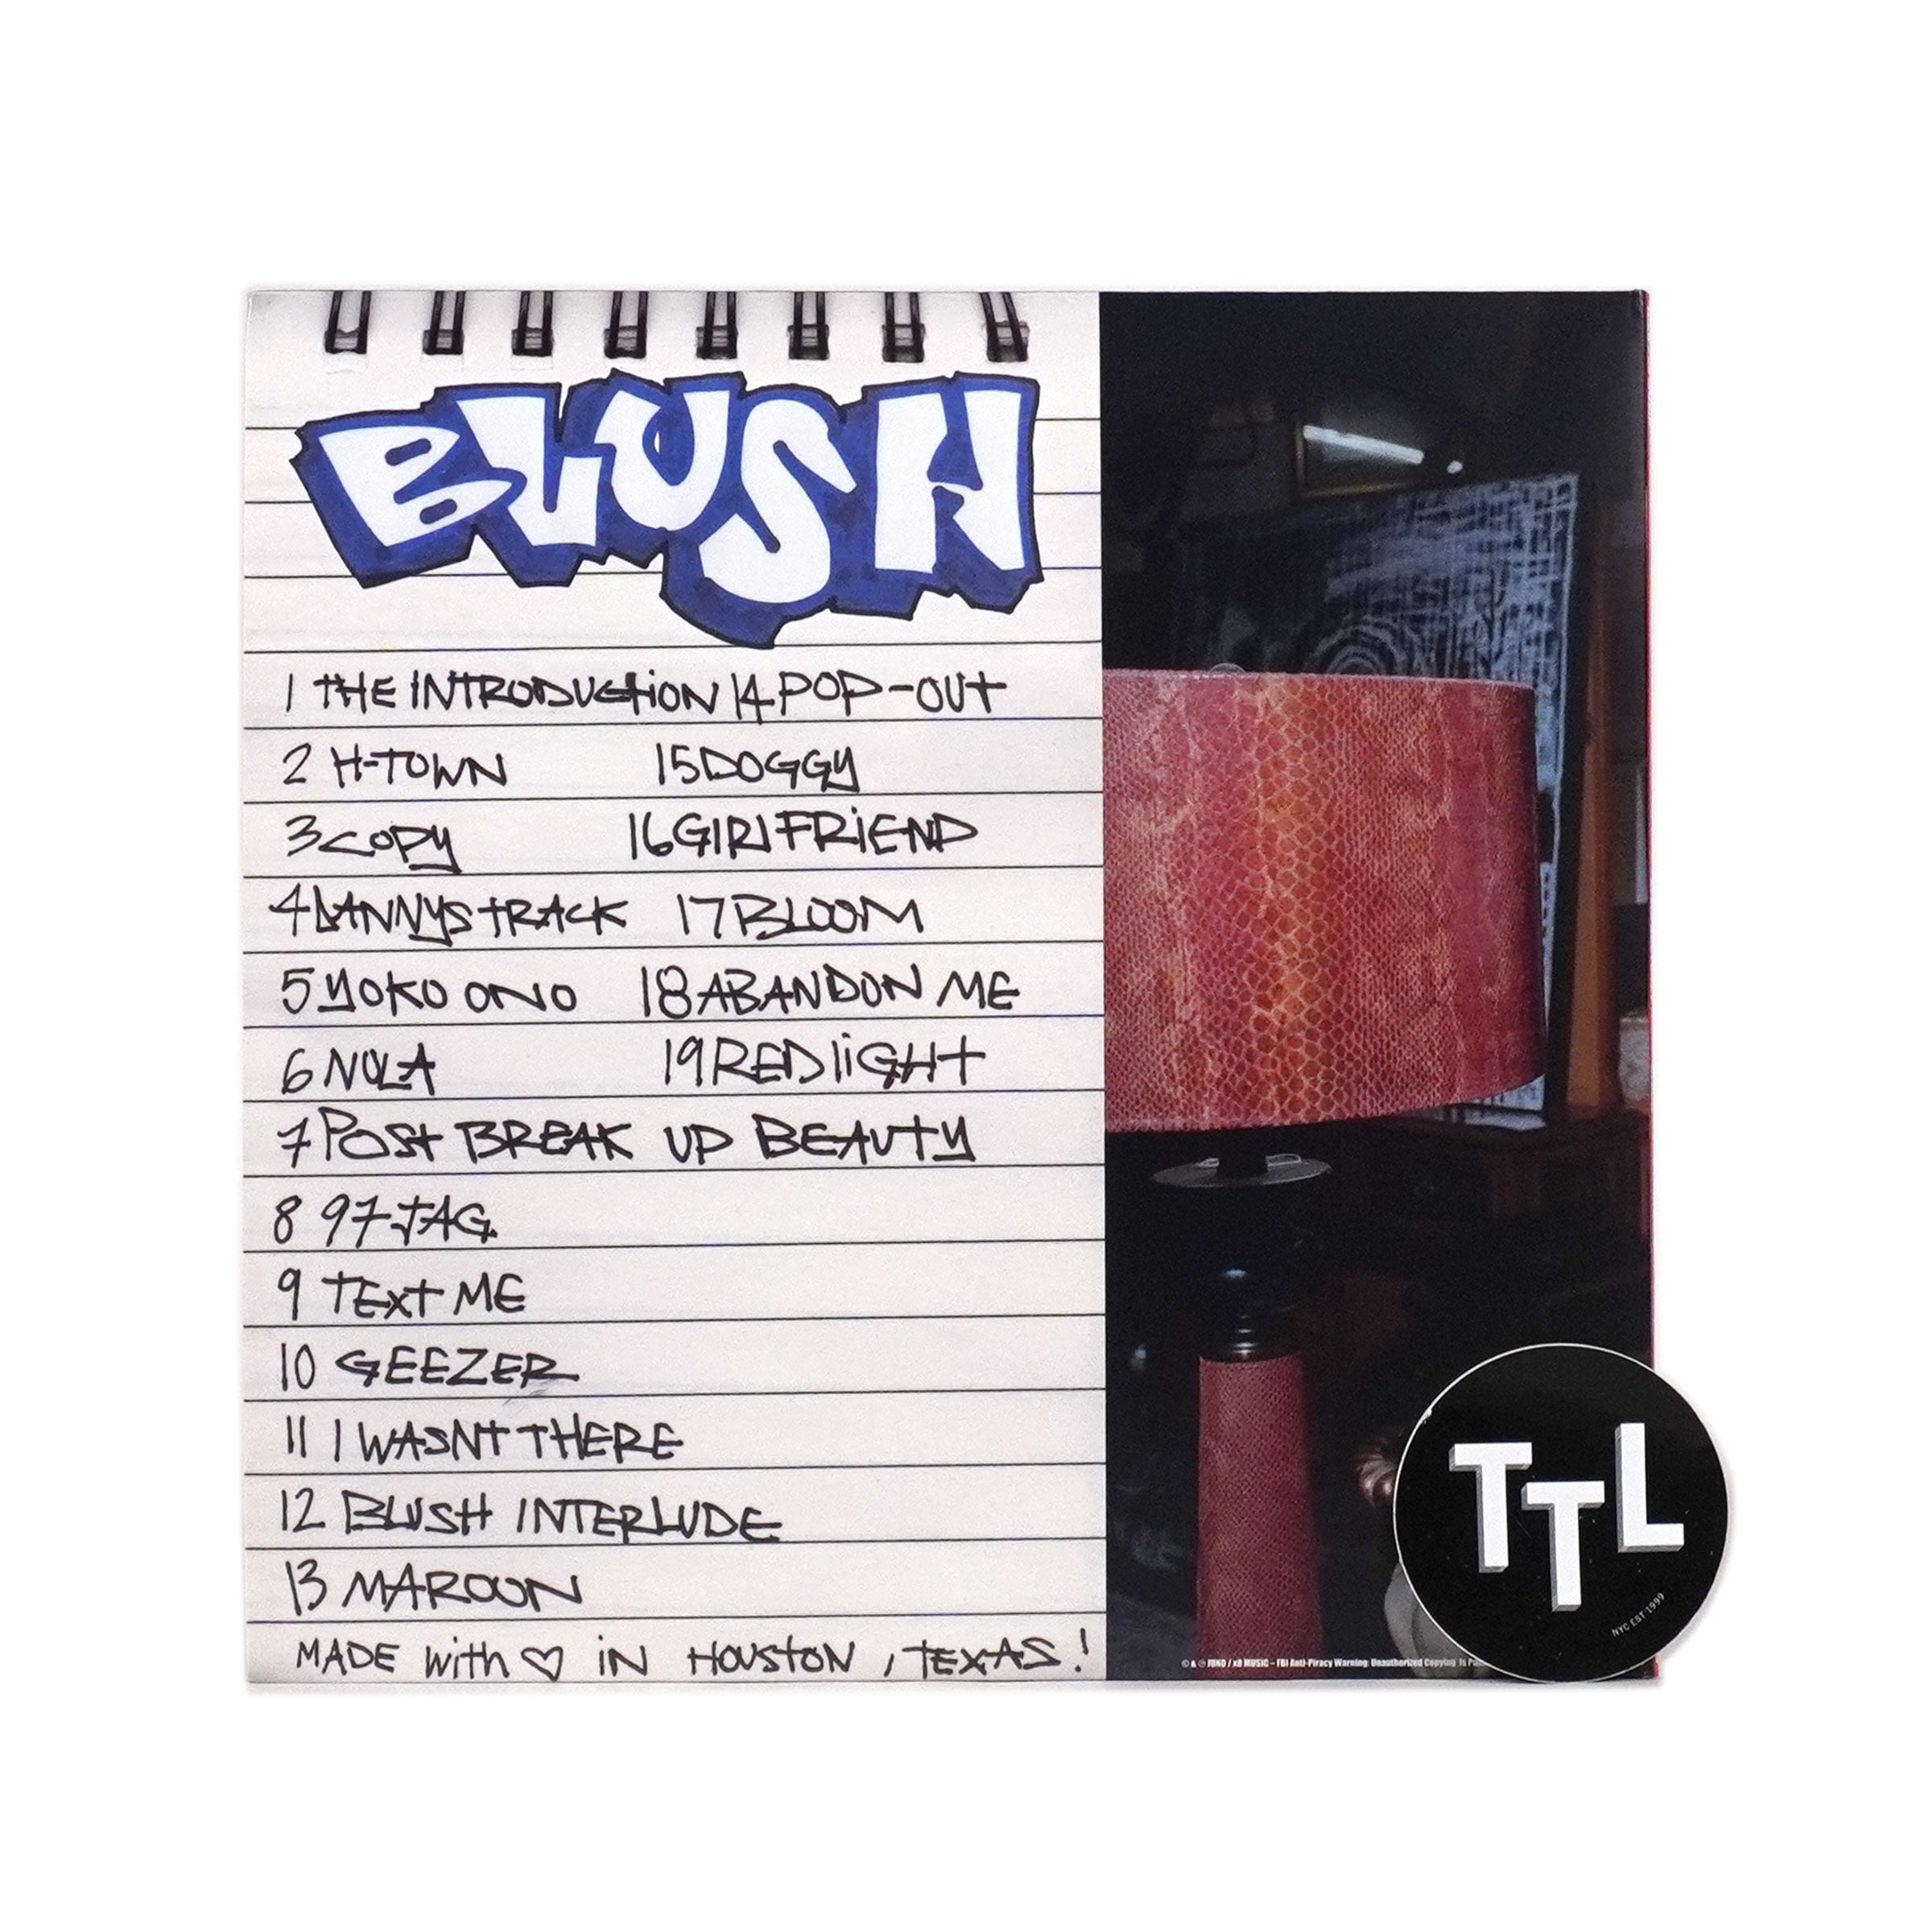 BLUSH
1 THE INTRODUCTION 14 POP-OUT
2 H-TOWN 15 DOGGY
3 COPY 16 GIRLFRIEND
4 DANNYS TRACK 17 BLOOM
5 YOKO ONO 18 ABANDON ME
6 NOLA 19 REDLIGHT
7 POST BREAK UP BEAUTY
8 97 JAG
9 TEXT ME
10 GEEZER
11 I WASNT THERE
12 BLUSH INTERLUDE
13 MAROON
MADE with ♡ iN HOUSTON, TEXAS!
© & ℗ / x8 MUSIC – FBI Anti-Piracy Warning: Unauthorized Copying Is
TTL
NYC EST 1999